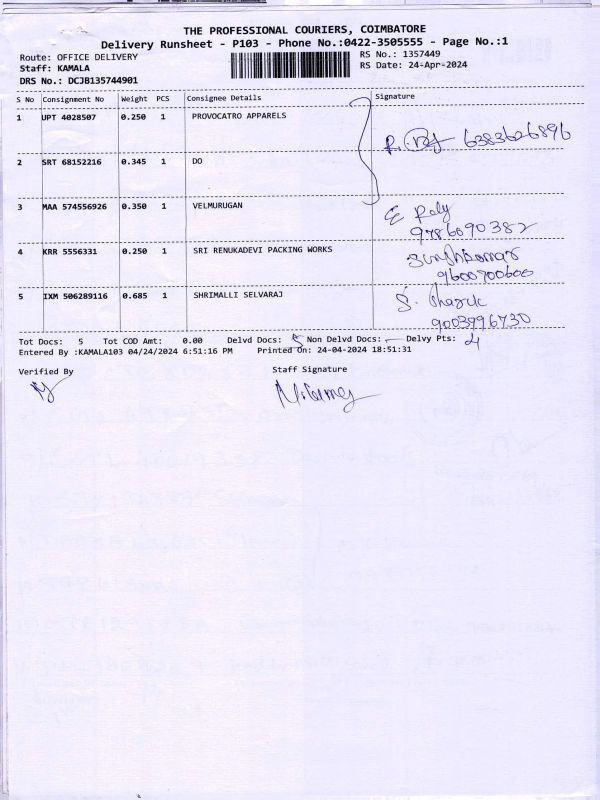 THE PROFESSIONAL COURIERS, COIMBATORE
Delivery Runsheet - P103 - Phone No.:0422-3505555 - Page No.:1
Route: OFFICE DELIVERY RS No.: 1357449
Staff: KAMALA RS Date: 24-Apr-2024
DRS No.: DCJB135744901
S No Consignment No Weight PCS Consignee Details Signature
1 UPT 4028507 0.250 1 PROVOCATRO APPARELS
6383626896
2 SRT 68152216 0.345 1 DO
3 MAA 574556926 0.350 1 VELMURUGAN
9786090382
4 KRR 5556331 0.250 1 SRI RENUKADEVI PACKING WORKS
9600700600
5 IXM 506289116 0.685 1 SHRIMALLI SELVARAJ
9003996730
Tot Docs: 5 Tot COD Amt: 0.00 Delvd Docs: 5 Non Delvd Docs: — Delvy Pts: 4
Entered By :KAMALA103 04/24/2024 6:51:16 PM Printed On: 24-04-2024 18:51:31
Verified By Staff Signature